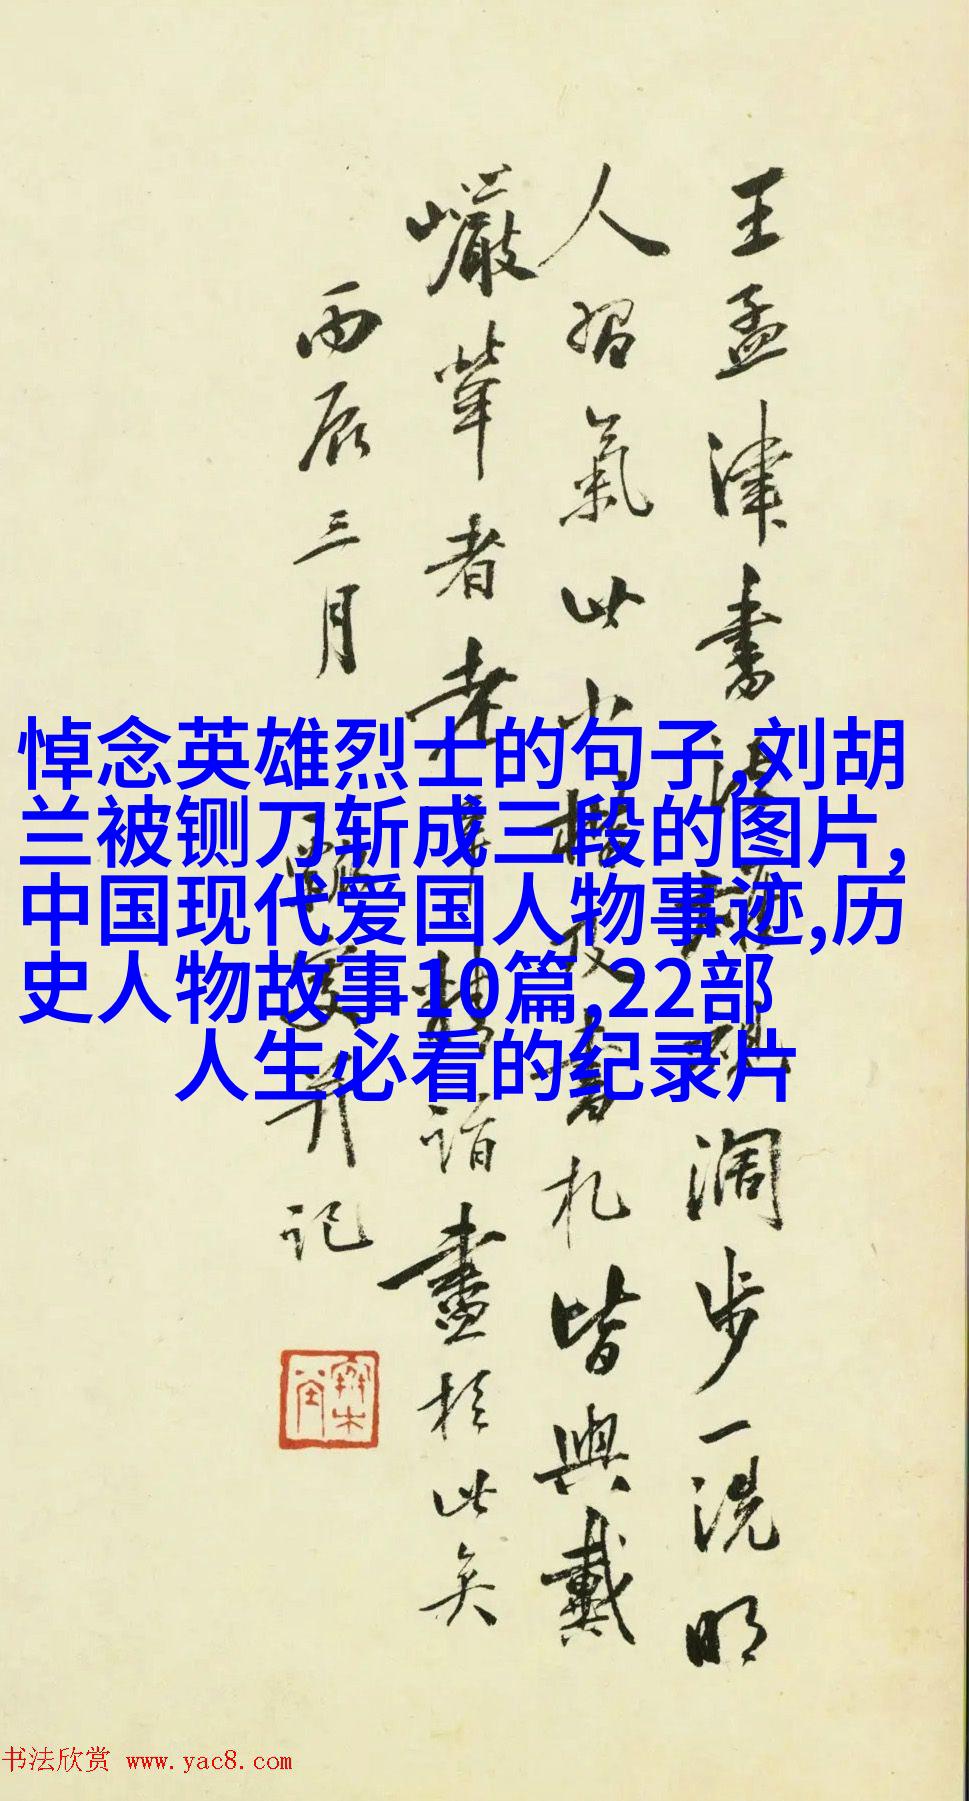 王孟津書法闊步一洗明
人習氣此小楷及書札皆與戴
巖犖者老年精詣盡於此矣
丙辰三月并記
悼念英雄烈士的句子,刘胡
兰被铡刀斩成三段的图片,
中国现代爱国人物事迹,历
史人物故事10篇,22部
人生必看的纪录片
书法欣赏 www.yac8.com